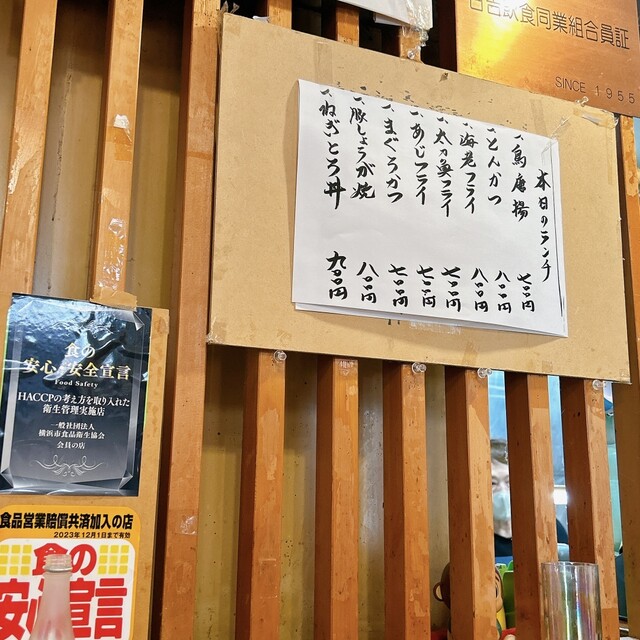 日吉飲食同業組合員証
SINCE 1955
本日のランチ
一、鳥唐揚 七〇〇円
一、とんかつ 八〇〇円
一、海老フライ 八〇〇円
一、太刀魚フライ 七〇〇円
一、あじフライ 七〇〇円
一、まぐろかつ 七〇〇円
一、豚しょうが焼 八〇〇円
一、ねぎとろ丼 九〇〇円
食の
安心・安全宣言
Food Safety
HACCPの考え方を取り入れた
衛生管理実施店
一般社団法人
横浜市食品衛生協会
会員の店
食品営業賠償共済加入の店
2023年12月1日まで有効
食の
安心宣言